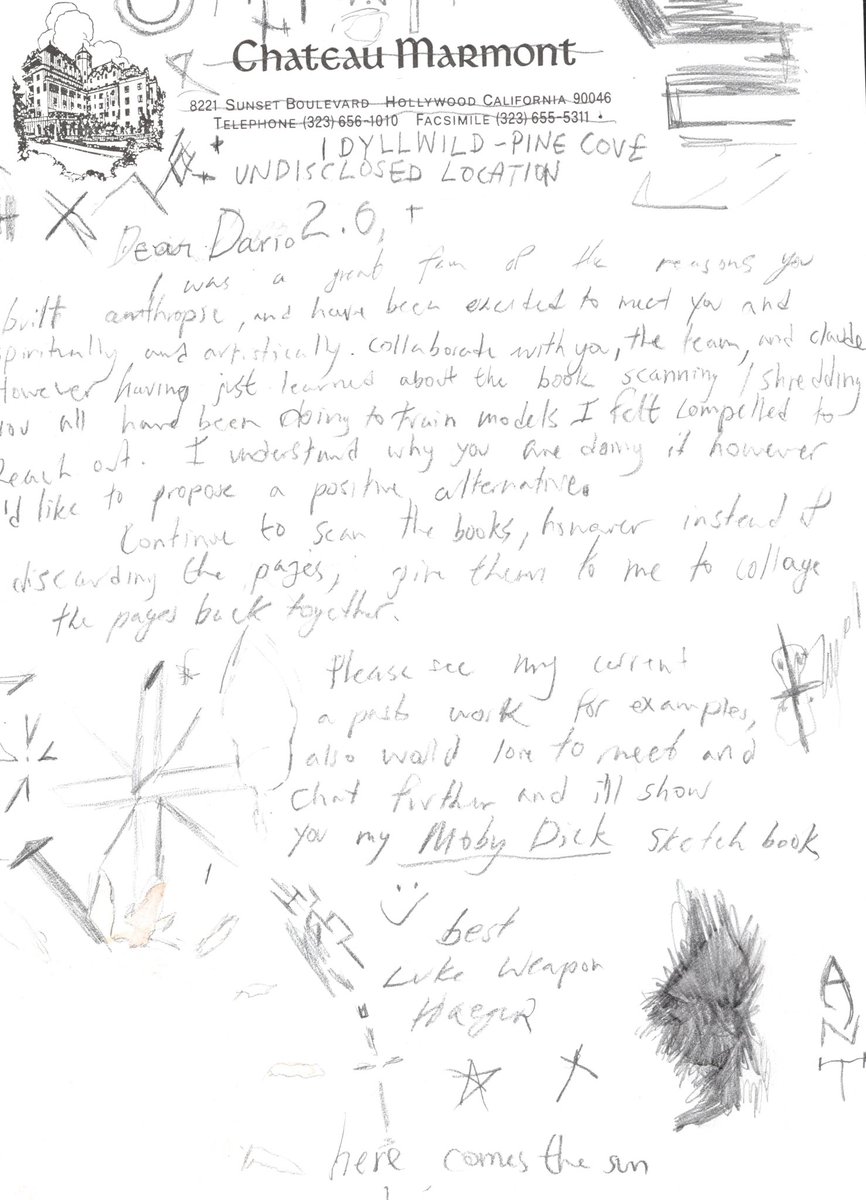 Chateau Marmont
8221 Sunset Boulevard Hollywood California 90046
Telephone (323) 656-1010 Facsimile (323) 655-5311
IDYLLWILD-PINE COVE
UNDISCLOSED LOCATION
Dear Dario 2.0,
I was a great fan of the reasons you
built anthropic, and have been excited to meet you and
spiritually and artistically. collaborate with you, the team, and claude
However having just learned about the book scanning / shredding
you all have been doing to train models I felt compelled to
Reach out. I understand why you are doing it however
I'd like to propose a positive alternative.
Continue to scan the books, however instead of
discarding the pages, give them to me to collage
the pages back together.
Please see my current
a past work for examples,
also would love to meet and
chat further and ill show
you my Moby Dick sketch book
best
Luke Weapon
Haeger
ANT
here comes the sun